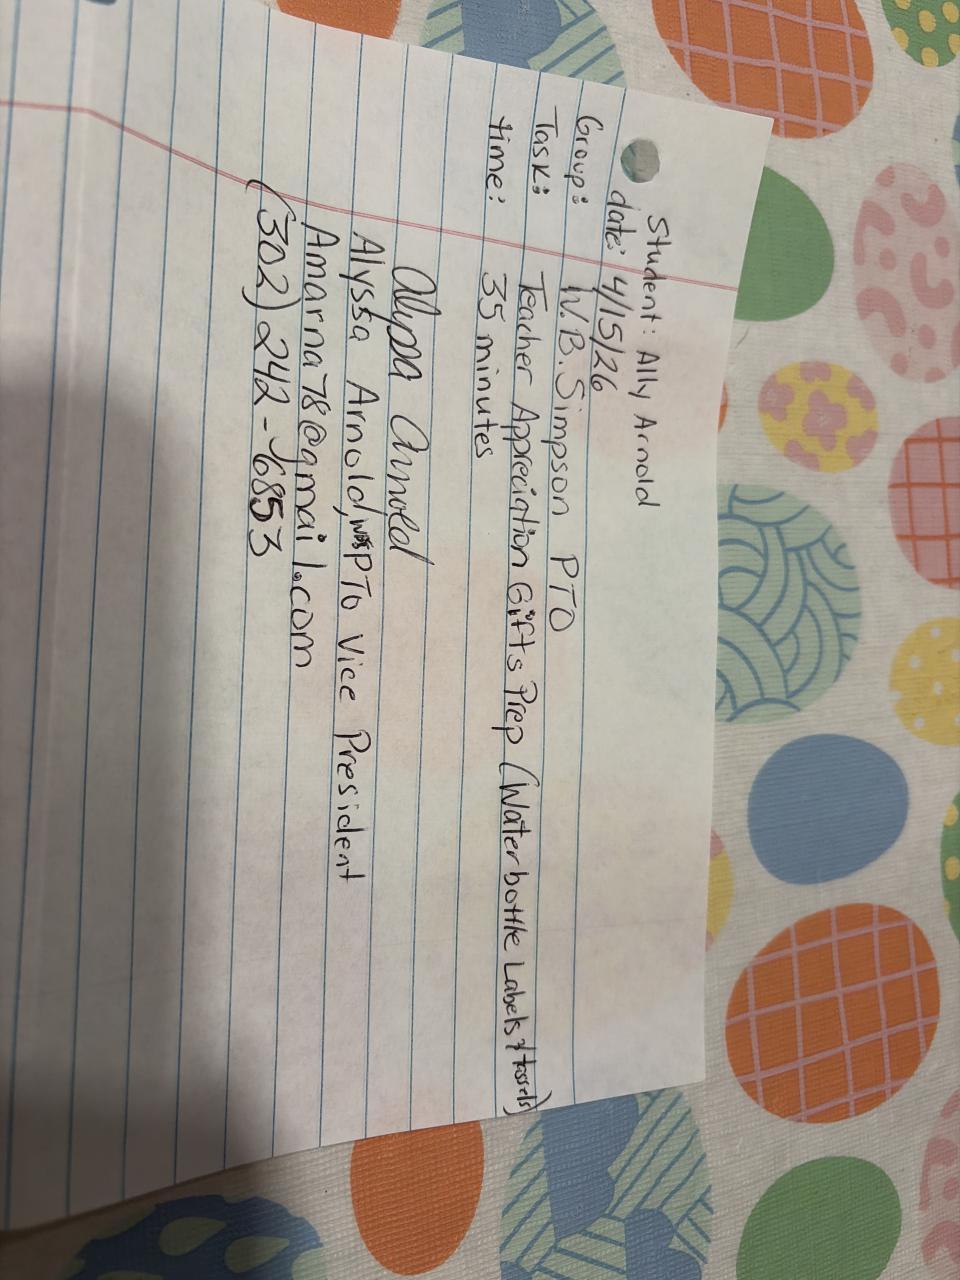 Student: Ally Arnold
date: 4/15/26
Group: W.B. Simpson PTO
Task: Teacher Appreciation Gifts Prep (Waterbottle Labels & tassels)
time: 35 minutes
Alyssa Arnold
Alyssa Arnold, WBSPTO Vice President
Amarna78@gmail.com
(302) 242-6853